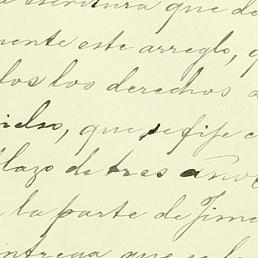 escritura que de
mente este arreglo, q
dos los derechos a
cielso, que se fije e
plazo de tres años
la parte de Jime
entrega que es la